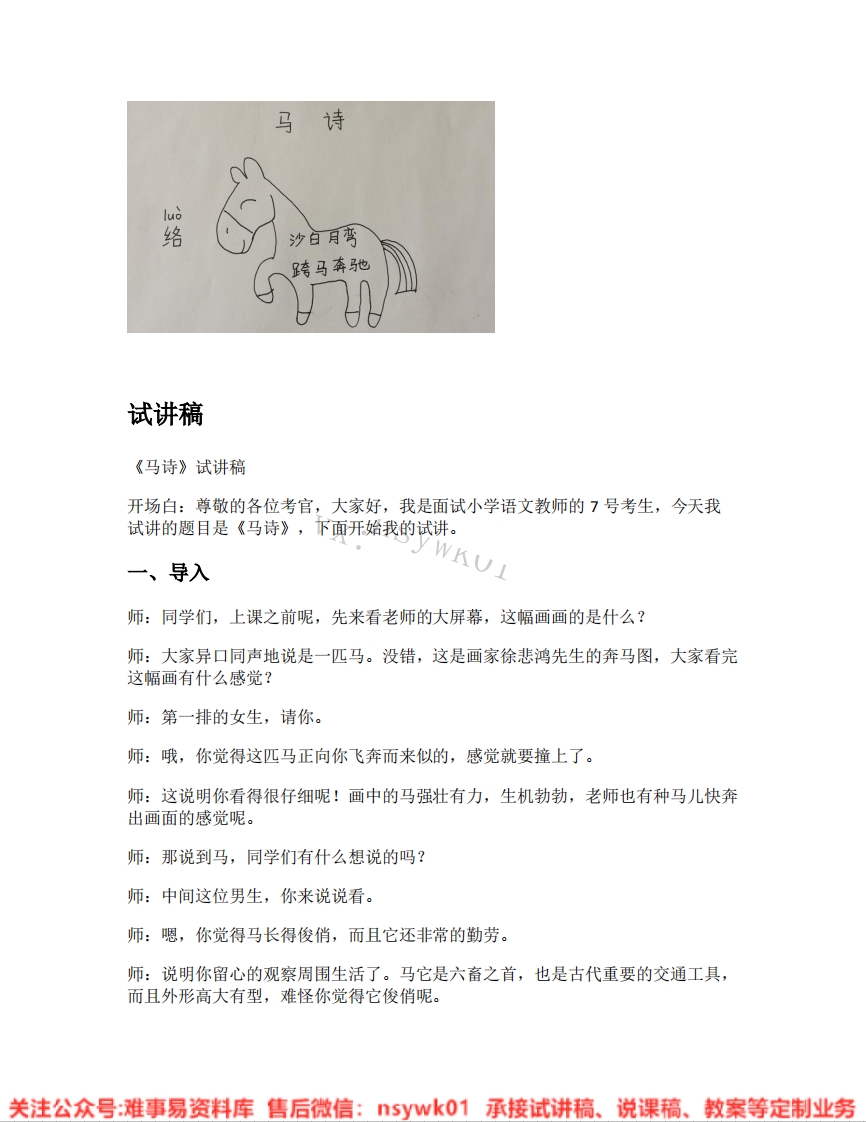 马 诗
luò
络
沙白月弯
跨马奔驰
试讲稿
《马诗》试讲稿
开场白：尊敬的各位考官，大家好，我是面试小学语文教师的 7 号考生，今天我
试讲的题目是《马诗》，下面开始我的试讲。
VX: nsywk01
一、导入
师：同学们，上课之前呢，先来看老师的大屏幕，这幅画画的是什么？
师：大家异口同声地说是一匹马。没错，这是画家徐悲鸿先生的奔马图，大家看完
这幅画有什么感觉？
师：第一排的女生，请你。
师：哦，你觉得这匹马正向你飞奔而来似的，感觉就要撞上了。
师：这说明你看得很仔细呢！画中的马强壮有力，生机勃勃，老师也有种马儿快奔
出画面的感觉呢。
师：那说到马，同学们有什么想说的吗？
师：中间这位男生，你来说说看。
师：嗯，你觉得马长得俊俏，而且它还非常的勤劳。
师：说明你留心的观察周围生活了。马它是六畜之首，也是古代重要的交通工具，
而且外形高大有型，难怪你觉得它俊俏呢。
关注公众号:难事易资料库 售后微信：nsywk01 承接试讲稿、说课稿、教案等定制业务